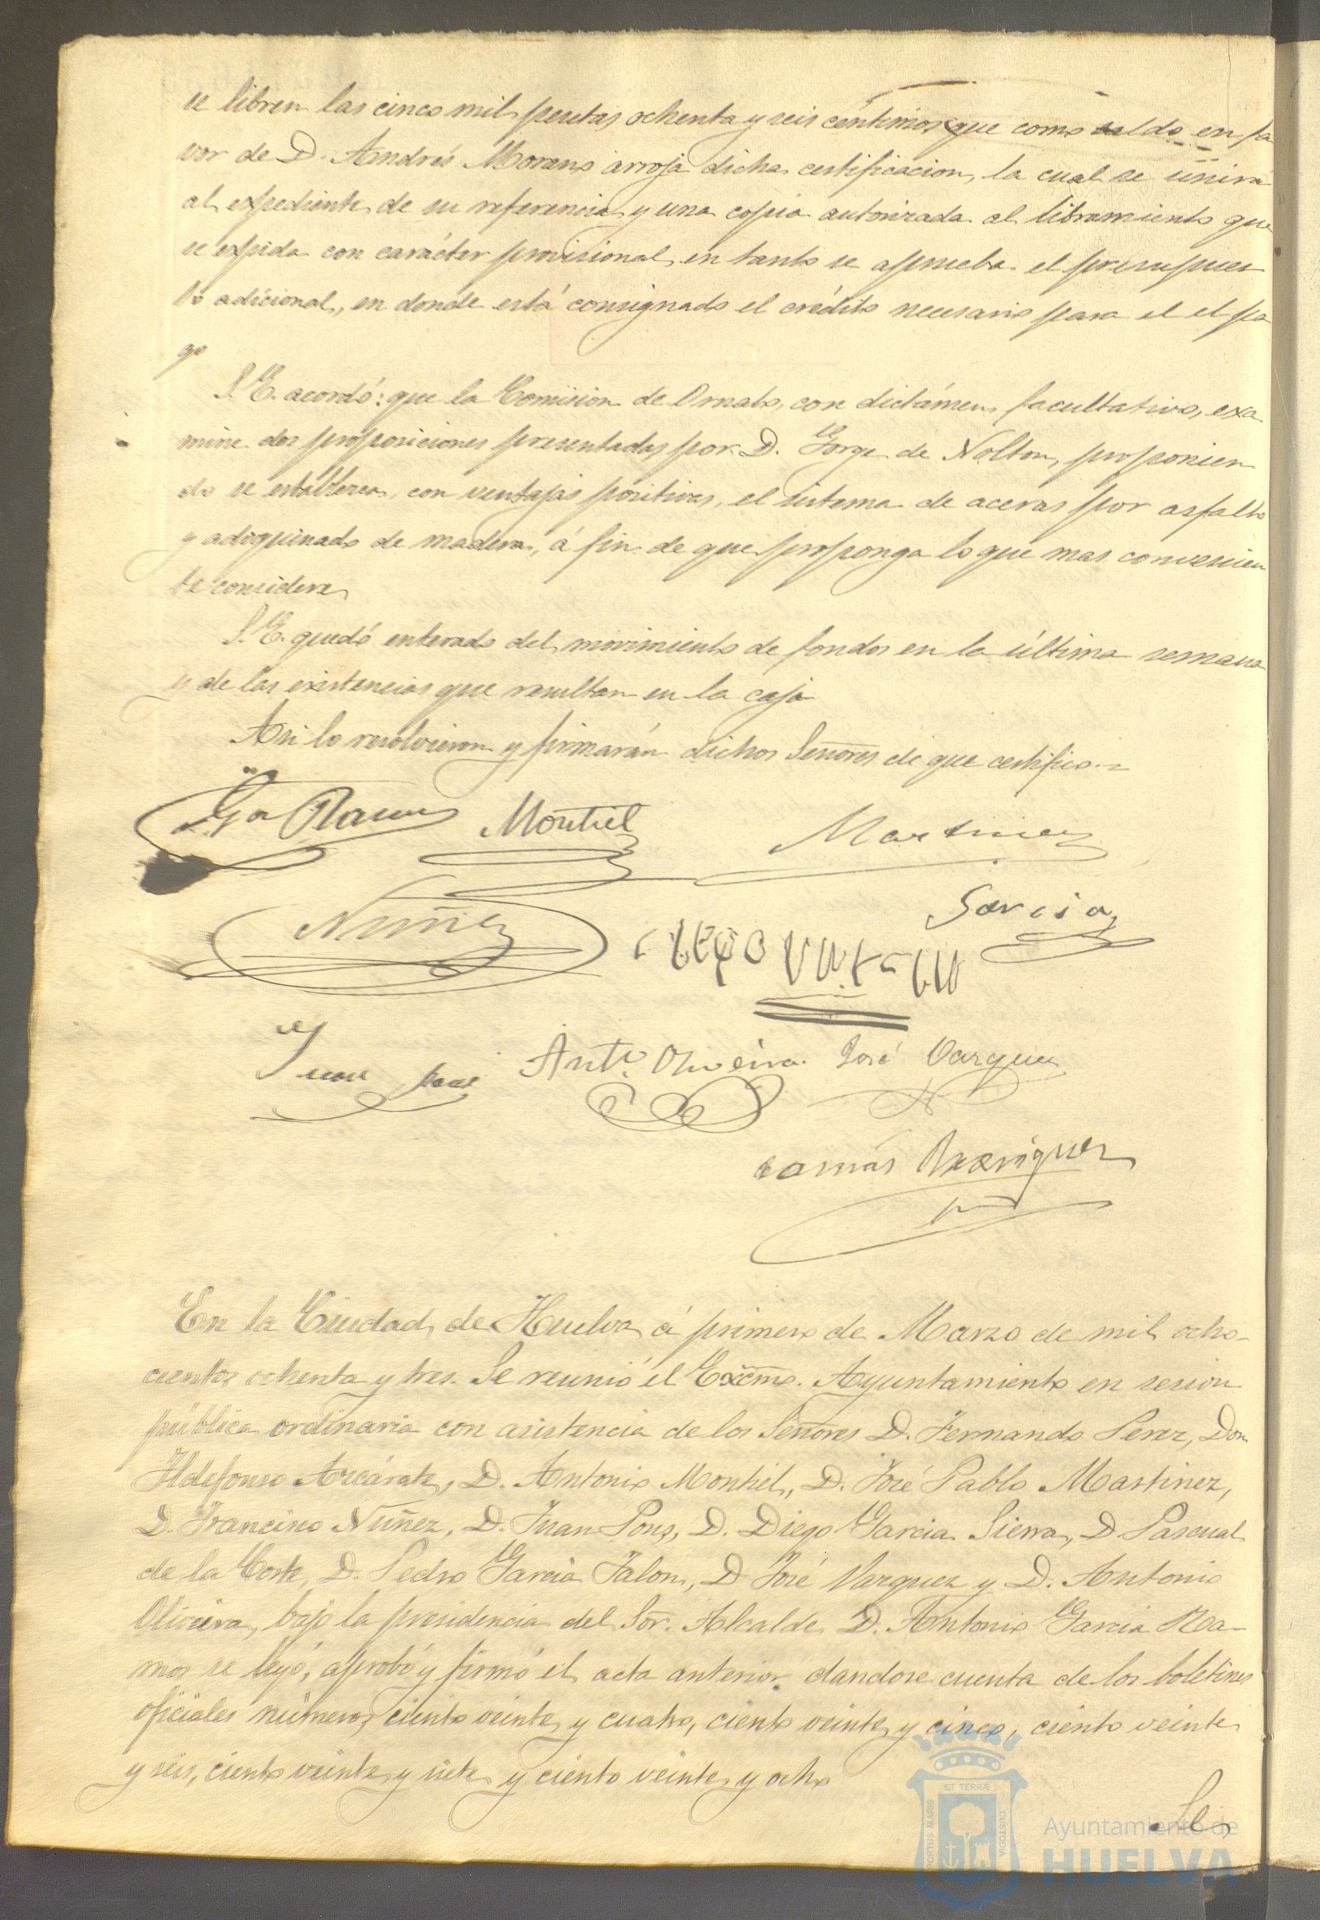 se libren las cinco mil pesetas ochenta y seis céntimos que como saldo en fa
vor de D. Andrés Moreno arroja dicha certificacion, la cual se unira
al expediente de su referencia y una copia autorizada al libramiento que
se expida con carácter provisional, en tanto se aprueba el presupues
to adicional, en donde está consignado el crédito necesario para el el pa
go
S. E. acordó: que la Comision de Ornato, con dictámen facultativo, exa
mine dos proposiciones presentadas por D. Jorge de Nolton, proponien
do se establezca, con ventajas positivas, el sistema de aceras por asfalto
y adoquinado de madera, á fin de que proponga lo que mas convenien
te considere
S. E. quedó enterado del movimiento de fondos en la última semana
y de las existencias que resultan en la caja
Asi lo resolvieron y firmarán dichos Señores de que certifico.=
Ga Ramos Montiel Martinez
Nuñez Garcia
Juan Pons Anto. Oliveira José Vazquez
Tomás Rodriguez
En la Ciudad de Huelva á primero de Marzo de mil ocho-
cientos ochenta y tres. Se reunió el Excmo. Ayuntamiento en sesion
pública ordinaria con asistencia de los Señores D. Fernando Perez, Don
Ildefonso Azcárate, D. Antonio Montiel, D. José Pablo Martinez,
D. Francisco Nuñez, D. Juan Pons, D. Diego Garcia Sierra, D. Pascual
de la Corte, D. Pedro Garcia Jalon, D José Vazquez y D. Antonio
Oliveira, bajo la presidencia del Sor. Alcalde D. Antonio Garcia Ra-
mos se leyó, aprobó y firmó el acta anterior dandose cuenta de los boletines
oficiales números ciento veinte y cuatro, ciento veinte y cinco, ciento veinte
y seis, ciento veinte y siete y ciento veinte y ocho
Se
PORTUS MARIS ET TERRÆ CUSTODIA
Ayuntamiento de
HUELVA